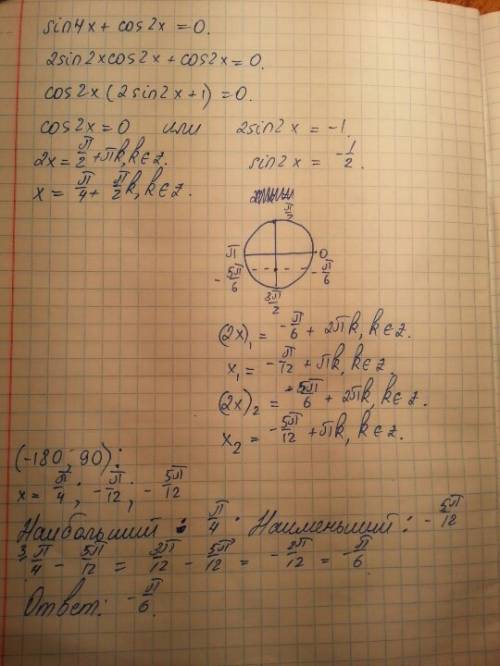 sin4x + cos2x = 0.
2sin2xcos2x + cos2x = 0.
cos2x(2sin2x+1) = 0.
cos2x = 0 или 2sin2x = -1.
2x = π/2 + πk, k∈z. sin2x = -1/2.
x = π/4 + π/2 k, k∈z.
π/2
π 0
-5π/6 -π/6
3π/2
(2x)₁ = -π/6 + 2πk, k∈z.
x₁ = -π/12 + πk, k∈z.
(2x)₂ = -5π/6 + 2πk, k∈z.
x₂ = -5π/12 + πk, k∈z.
(-180; 90):
x = π/4; -π/12; -5π/12
Наибольший: π/4. Наименьший: -5π/12
³⁾π/4 - 5π/12 = 3π/12 - 5π/12 = -2π/12 = -π/6.
Ответ: -π/6.